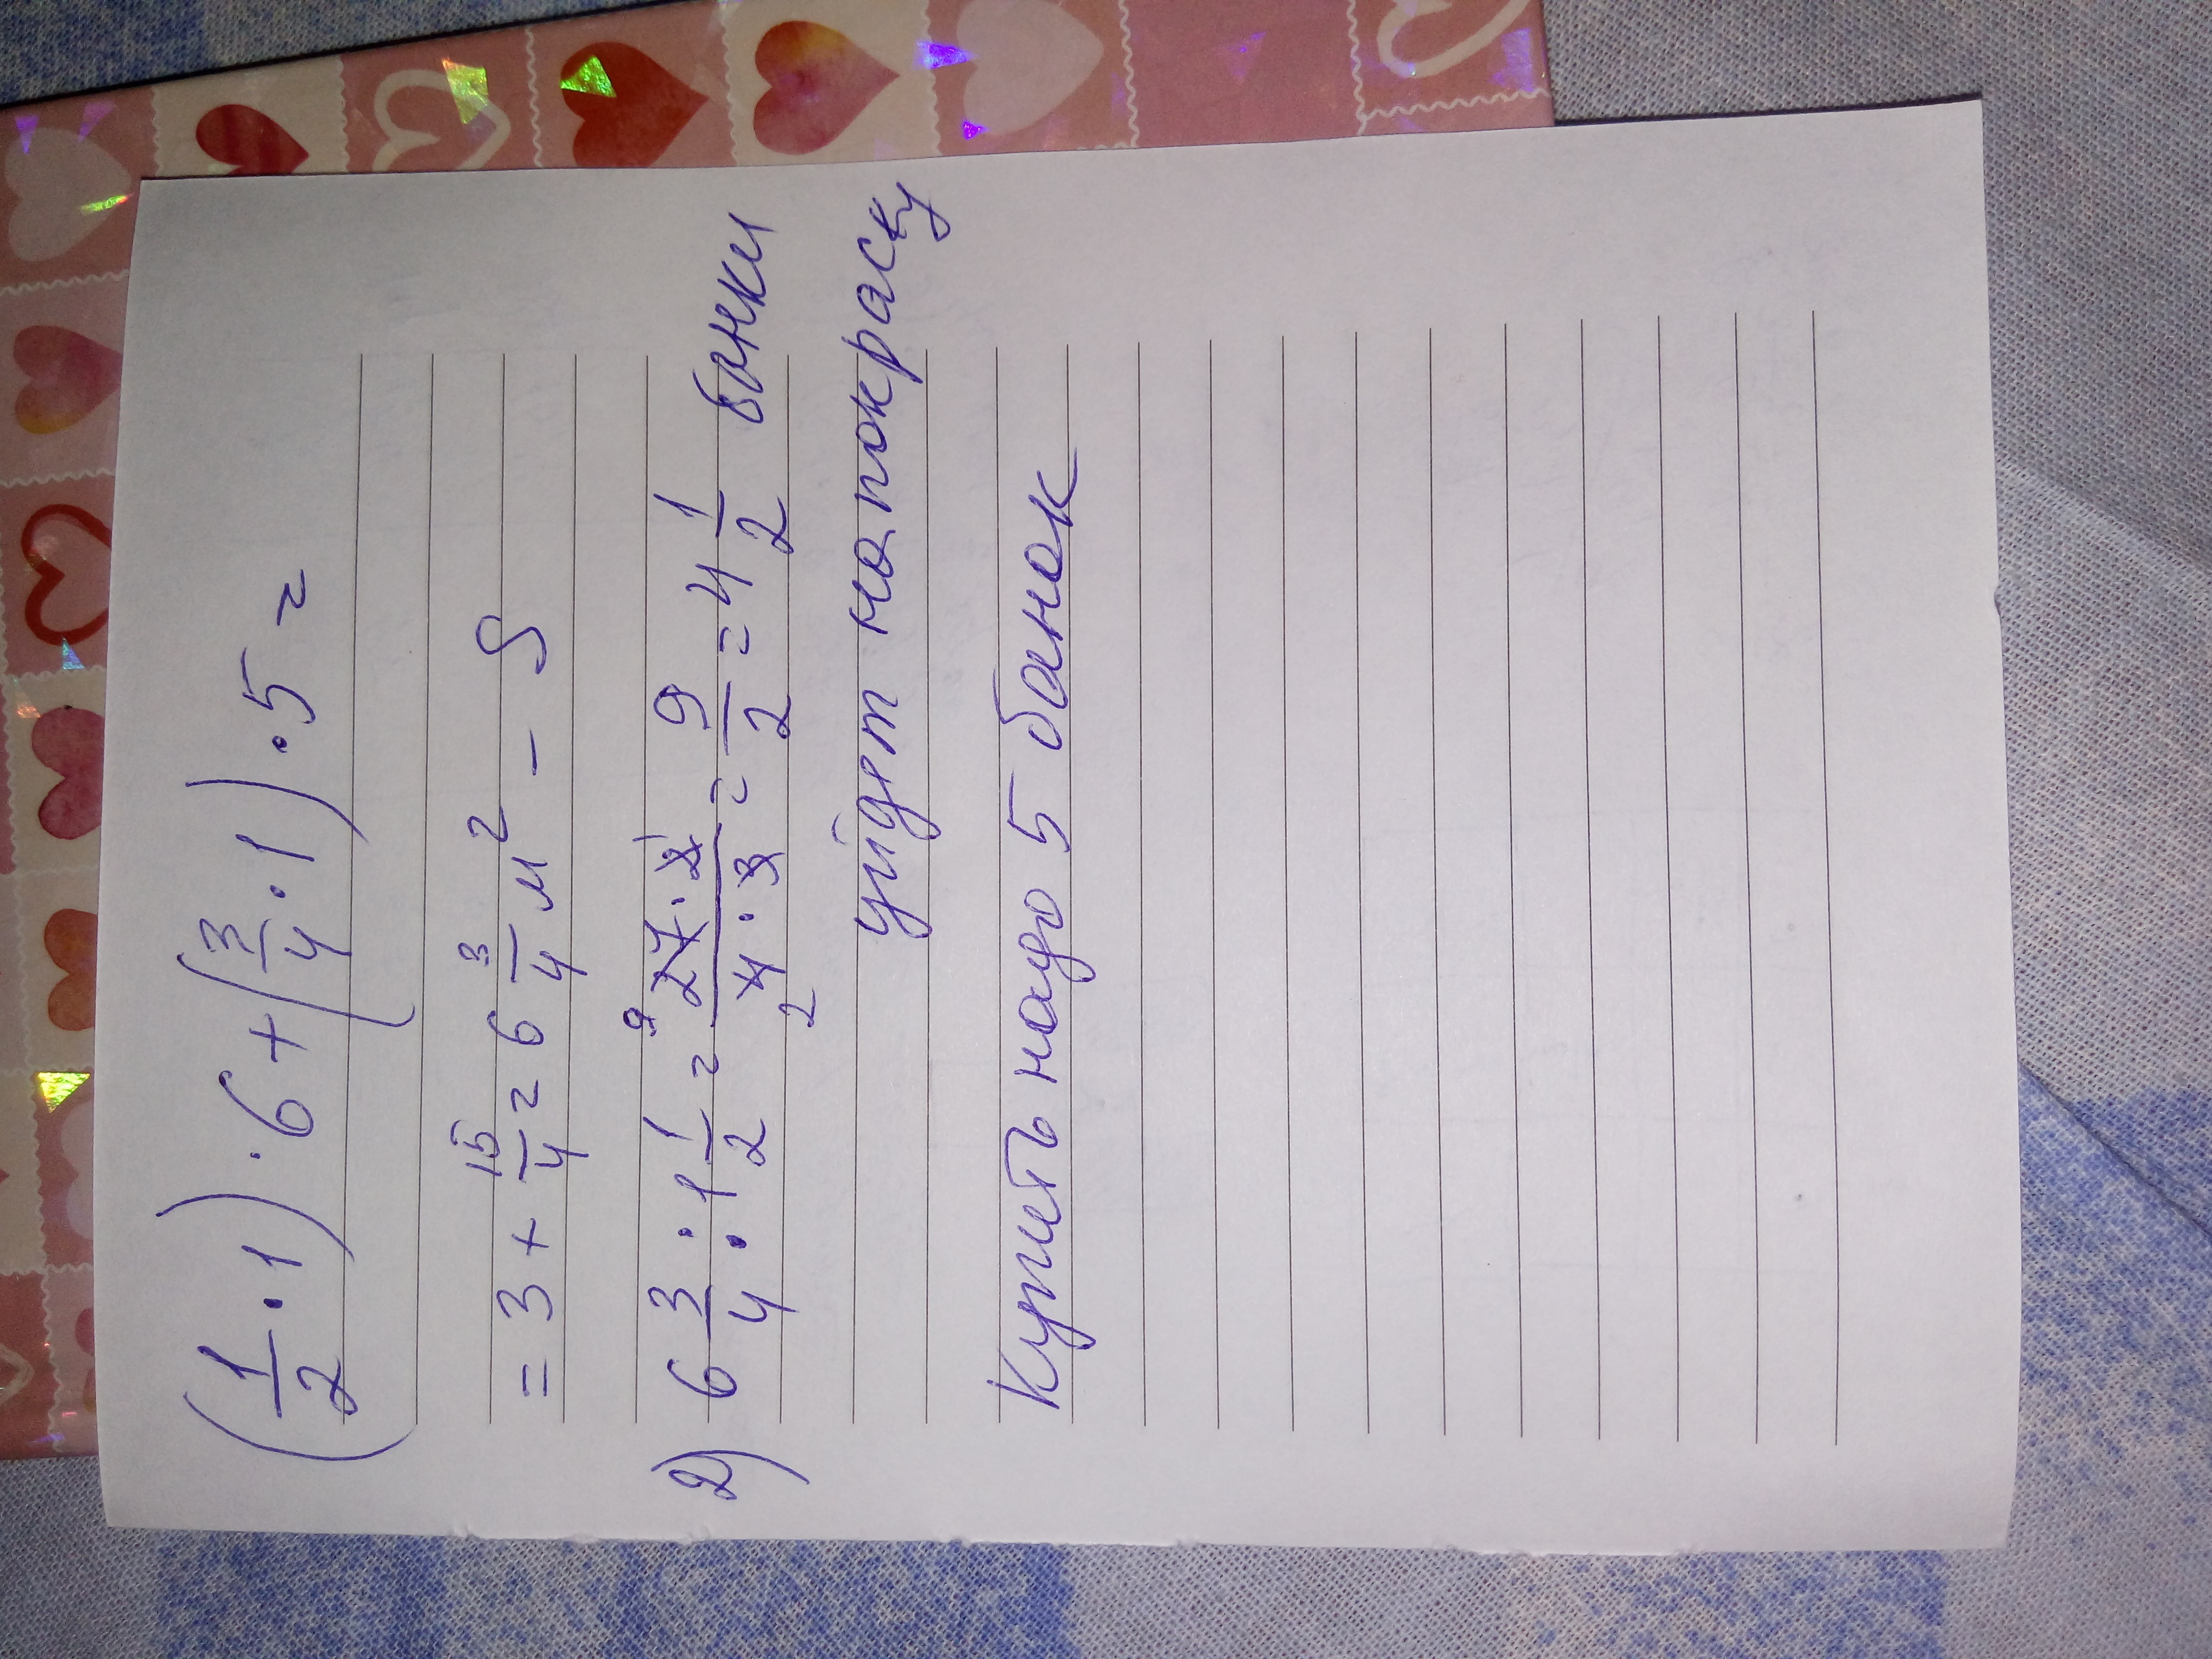 (1/2 · 1) · 6 + (3/4 · 1) · 5 =
= 3 + 15/4 = 6 3/4 м² - S
2) 6 3/4 : 1 1/2 = 9 27 · 2 1 / 2 4 · 3 = 9/2 = 4 1/2 банки
уйдет на покраску
Купить надо 5 банок